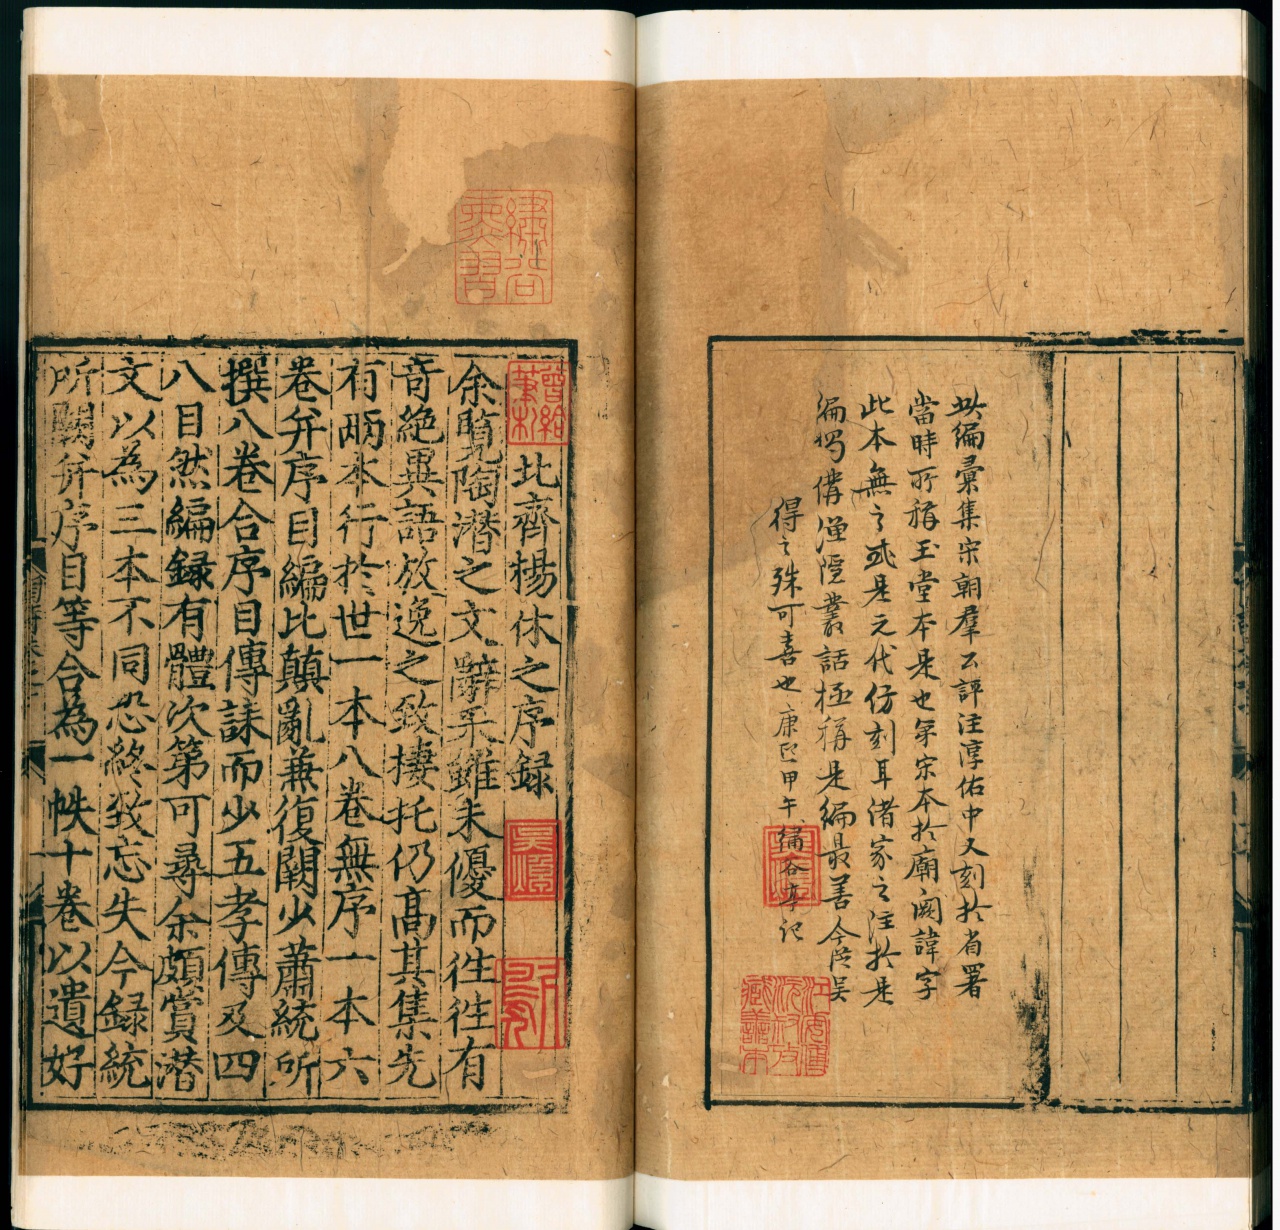 此編彙集宋朝羣公評注淳佑中又刻於省署
當時所稱玉堂本是也第宋本於廟諱闕字
此本無之或是元代仿刻耳諸家之注於是
編獨備漁隱叢話極稱是編最善今於吳
得之殊可喜也康熙甲午繡谷亭記
北齊楊休之序録
余覽陶潛之文辭采雖未優而往往有
奇絶異語放逸之致棲托仍髙其集先
有兩本行於世一本八卷無序一本六
卷并序目編比顛亂兼復闕少蕭統所
撰八卷合序目傳誄而少五孝傳及四
八目然編録有體次第可尋余頗賞潛
文以為三本不同恐終致忘失今録統
所闕并序目等合為一帙十卷以遺好